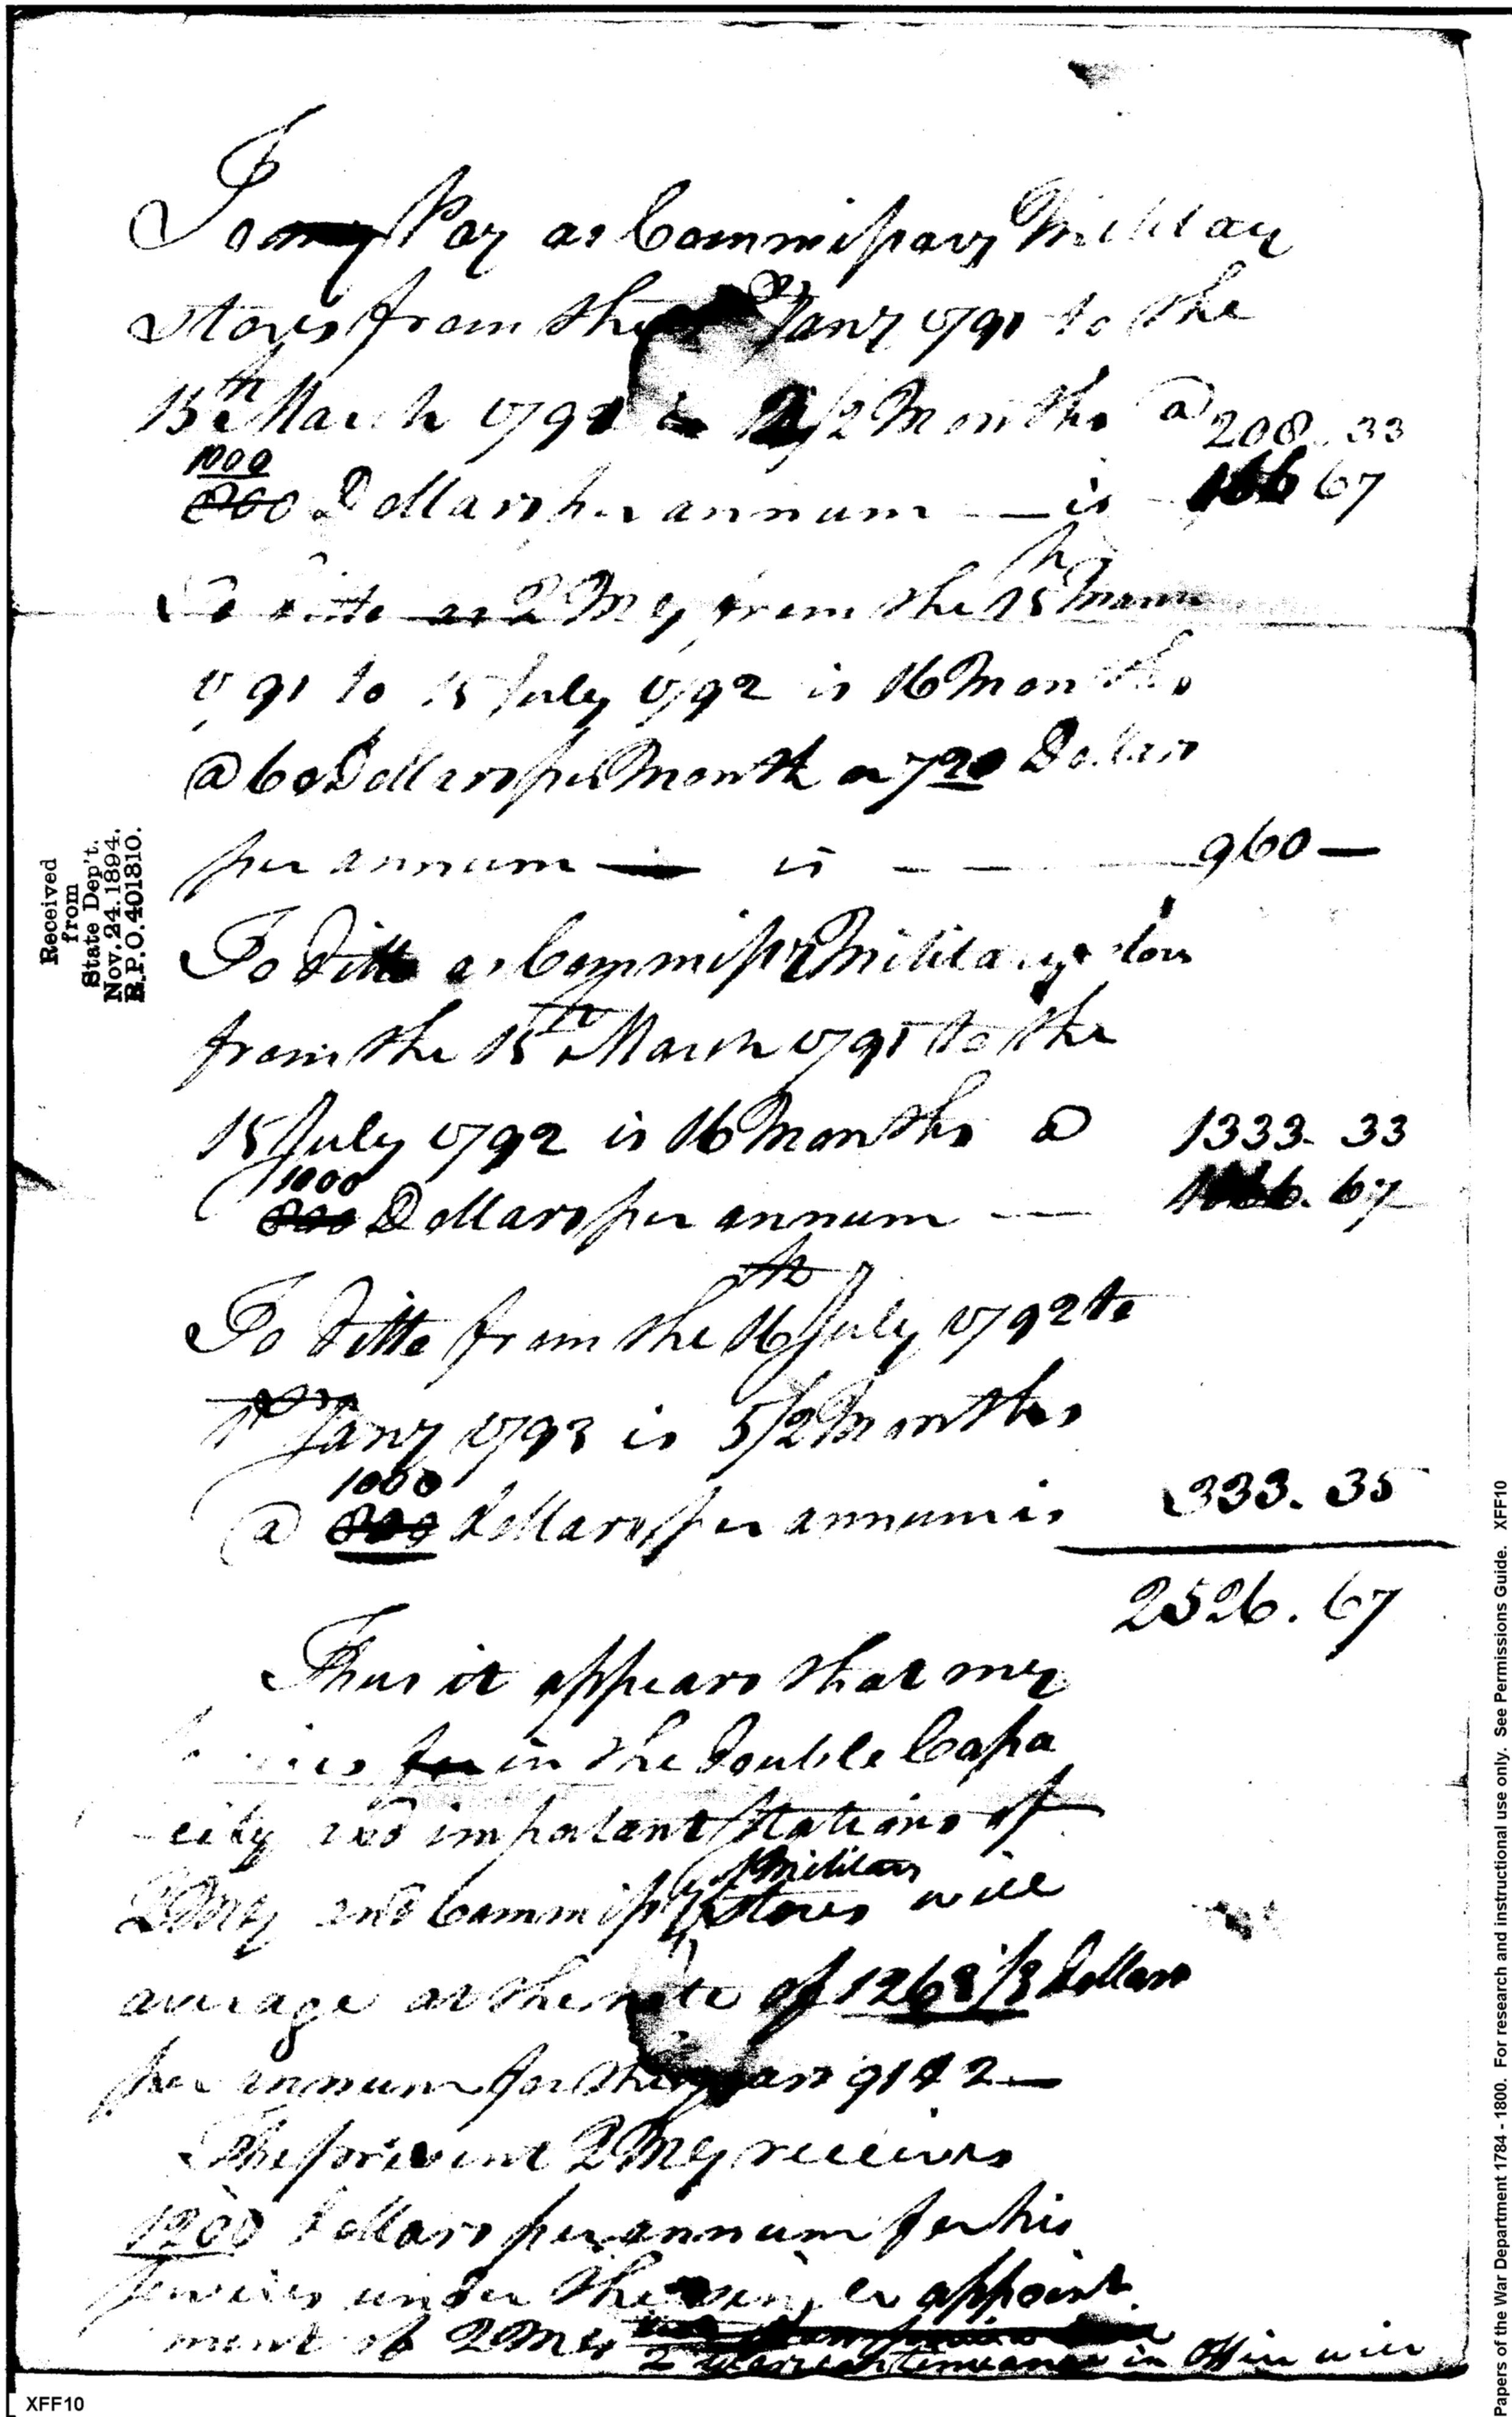 To my Pay as Commissary Military
Stores from the Jany 1791 to the
15th March 1791 is 2 1/2 Months @ 208. 33
1000
800 Dollars per annum — is 166 67
To ditto as QMG from the 15th March
1791 to 15 July 1792 is 16 Months
@ 60 Dollars per Month or 720 Dollars
per annum — is — — 960 —
To ditto as Commissy Military Stores
from the 15th March 1791 to the
15 July 1792 is 16 Months @ 1333. 33
1000
800 Dollars per annum — 1066. 67
To ditto from the 16th July 1792 to
1st Jany 1793 is 5 1/2 Months
1000
@ 800 dollars per annum is 333. 35
2526. 67
Thus it appears that my
for in the double Capa
city and important Stations of
Military
QMG and Commissy of Stores will
average at the rate of 1263 1/3 dollars
per annum for the years 91 & 2 —
The present QMG receives
1200 dollars per annum for his
services under the single appoint
ment of QMG
2 years continuance in Office will
Received
from
State Dep't.
Nov. 24. 1894.
R.P.O. 401810.
Papers of the War Department 1784 - 1800. For research and instructional use only. See Permissions Guide. XFF10
XFF10